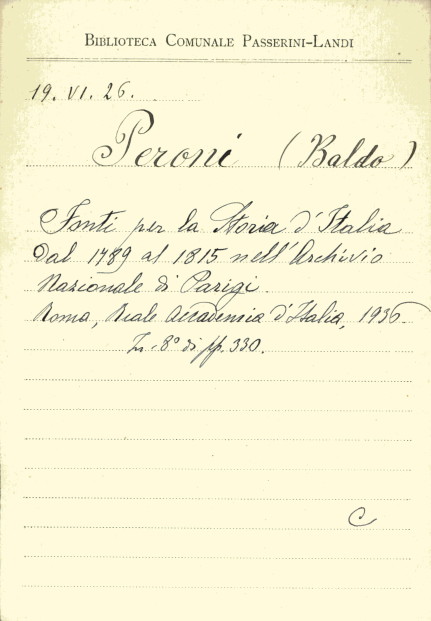 BIBLIOTECA COMUNALE PASSERINI-LANDI
19. VI. 26.
Peroni (Baldo)
Fonti per la Storia d'Italia
dal 1789 al 1815 nell'Archivio
Nazionale di Parigi.
Roma, Reale Accademia d'Italia, 1936.
In-8° di pp. 330.
C